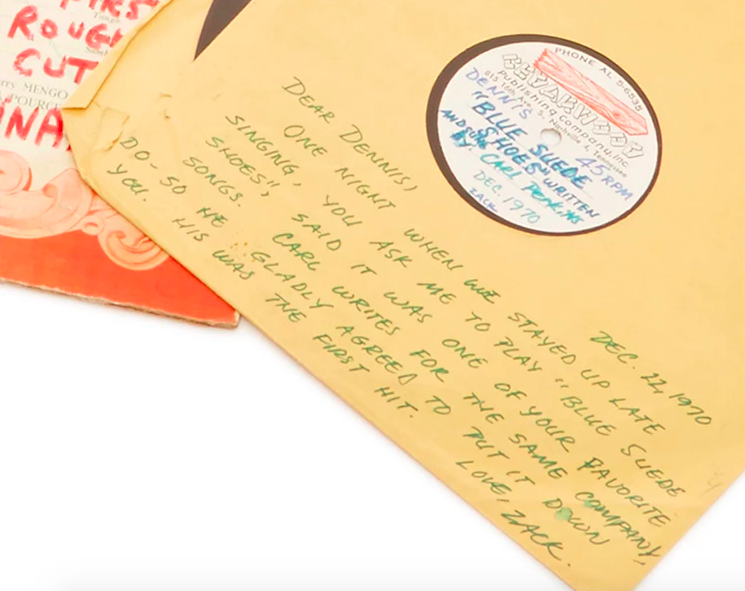 ROUGH
CUT
MENGO
PHONE AL 5-6535
CEDARWOOD
Publishing Company, Inc.
815 16th Ave. S. Nashville Tennessee
DENNIS
45 RPM
"BLUE SUEDE
SHOES" WRITTEN
AND SUNG
BY CARL PERKINS
DEC. 1970
ZACK
DEC. 22, 1970
DEAR DENNIS,
ONE NIGHT WHEN WE STAYED UP LATE
SINGING, YOU ASK ME TO PLAY "BLUE SUEDE
SHOES", SAID IT WAS ONE OF YOUR FAVORITE
SONGS. CARL WRITES FOR THE SAME COMPANY
DO. SO HE GLADLY AGREED TO PUT IT DOWN
YOU. HIS WAS THE FIRST HIT.
LOVE, ZACK.